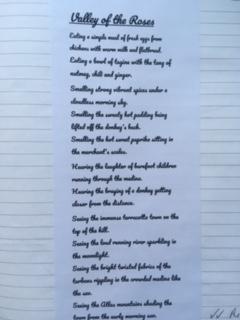 Valley of the Roses
Eating a simple meal of fresh eggs from
chickens with warm milk and flatbread.
Eating a bowl of tagine with the tang of
nutmeg, chili and ginger.
Smelling strong vibrant spices under a
cloudless morning sky.
Smelling the sweaty hot padding being
lifted off the donkey's back.
Smelling the hot sweet paprika sitting in
the merchant's scales.
Hearing the laughter of barefoot children
running through the medina.
Hearing the braying of a donkey getting
closer from the distance.
Seeing the immense terracotta town on the
top of the hill.
Seeing the loud running river sparkling in
the moonlight.
Seeing the bright twisted fabrics of the
turbans rippling in the crowded medina like
the sea.
Seeing the Atlas mountains shading the
town from the early morning sun.